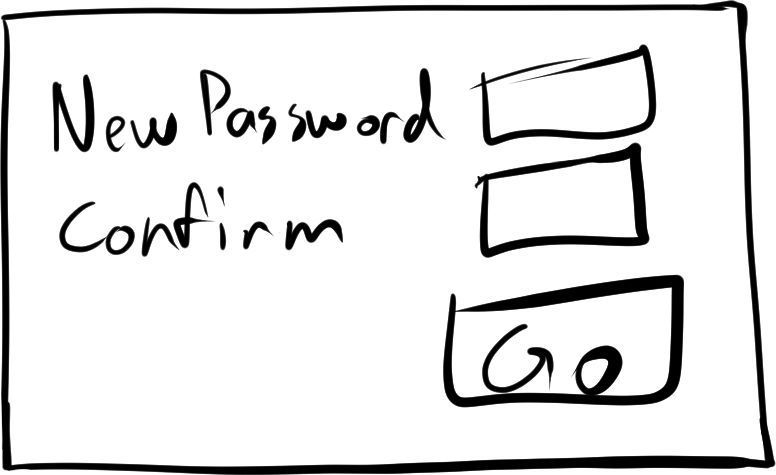 New Password
Confirm
Go